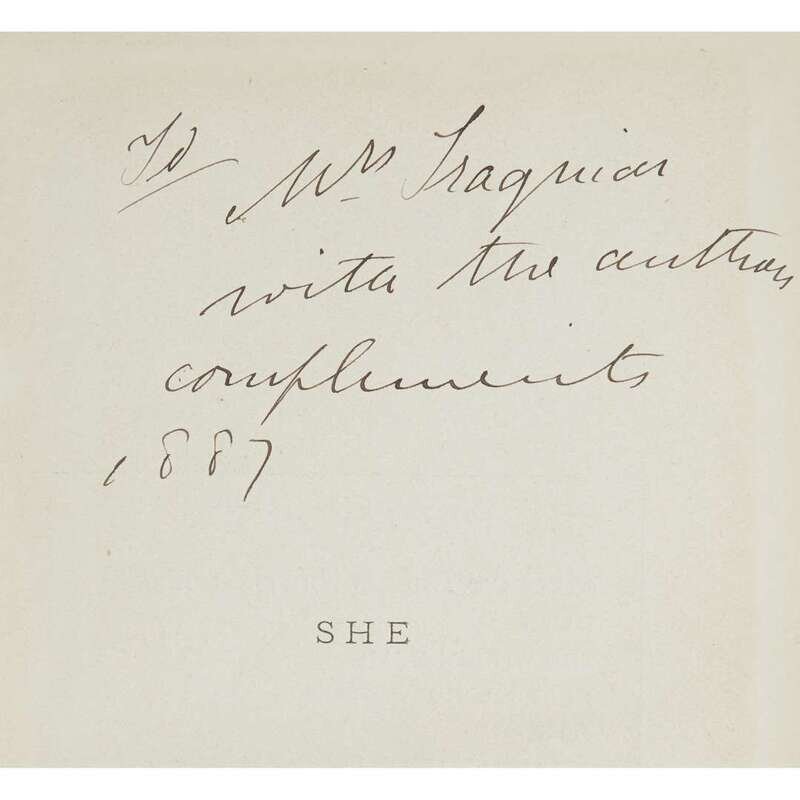 To Mrs Traquair
with the authors
compliments
1887
SHE